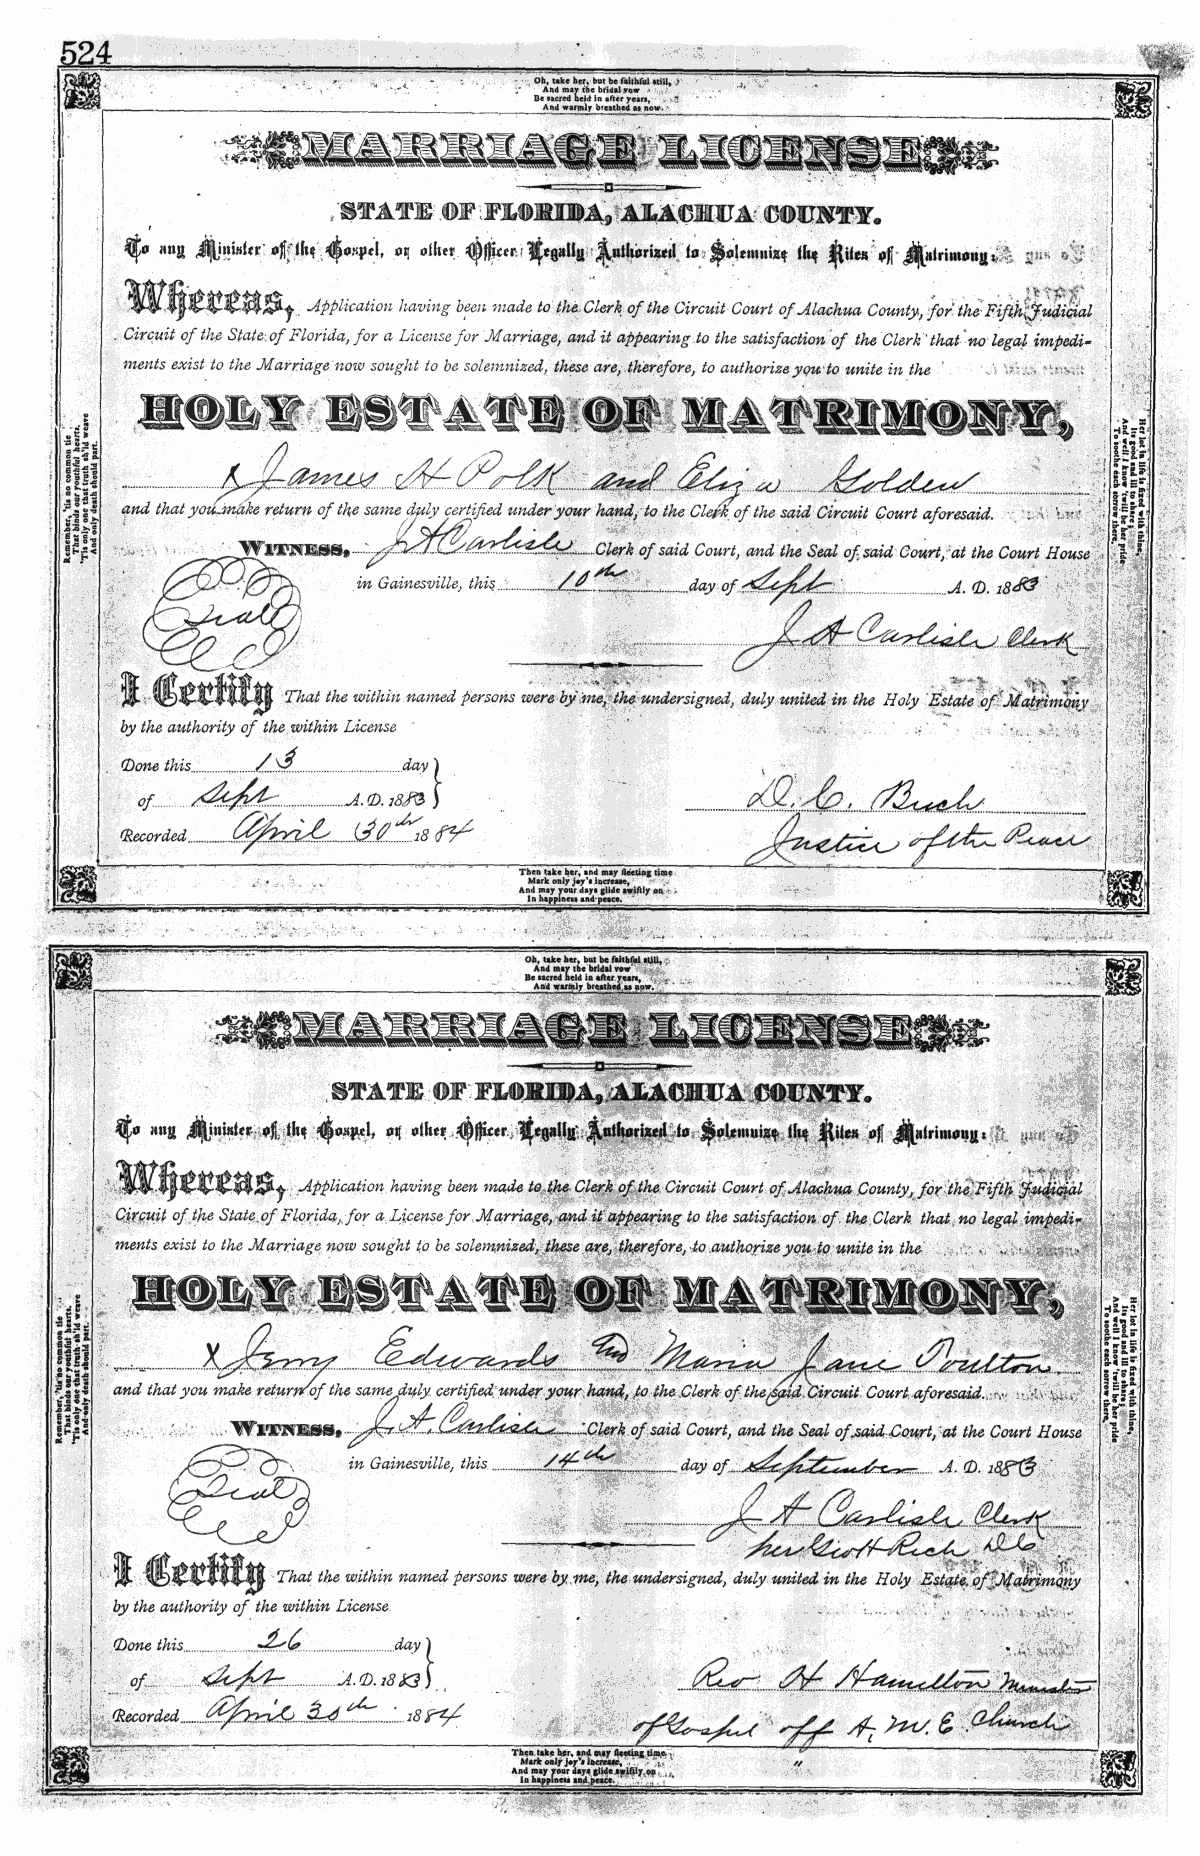 524
Oh, take her, but be faithful still,
And may the bridal vow
Be sacred held in after years,
And warmly breathed as now.
MARRIAGE LICENSE
STATE OF FLORIDA, ALACHUA COUNTY.
To any Minister of the Gospel, or other Officer Legally Authorized to Solemnize the Rites of Matrimony:
Whereas, Application having been made to the Clerk of the Circuit Court of Alachua County, for the Fifth Judicial
Circuit of the State of Florida, for a License for Marriage, and it appearing to the satisfaction of the Clerk that no legal impedi-
ments exist to the Marriage now sought to be solemnized, these are, therefore, to authorize you to unite in the
HOLY ESTATE OF MATRIMONY,
x James H Polk and Eliza Golden
and that you make return of the same duly certified under your hand, to the Clerk of the said Circuit Court aforesaid.
WITNESS, J A Carlisle Clerk of said Court, and the Seal of said Court, at the Court House
in Gainesville, this 10th day of Sept A. D. 1883
Seal
J A Carlisle Clerk
I Certify That the within named persons were by me, the undersigned, duly united in the Holy Estate of Matrimony
by the authority of the within License
Done this 13 day
of Sept A. D. 1883
D. C. Buch
Recorded April 30th 1884
Justice of the Peace
Remember, 'tis no common tie
That binds our youthful hearts,
'Tis only one that truth sh'ld weave
And only death should part.
Her lot in life is fixed with thine,
Its good and ill to share;
And well I know 'twill be her pride
To soothe each sorrow there.
Then take her, and may fleeting time
Mark only joy's increase,
And may your days glide swiftly on
In happiness and peace.
Oh, take her, but be faithful still,
And may the bridal vow
Be sacred held in after years,
And warmly breathed as now.
MARRIAGE LICENSE
STATE OF FLORIDA, ALACHUA COUNTY.
To any Minister of the Gospel, or other Officer Legally Authorized to Solemnize the Rites of Matrimony:
Whereas, Application having been made to the Clerk of the Circuit Court of Alachua County, for the Fifth Judicial
Circuit of the State of Florida, for a License for Marriage, and it appearing to the satisfaction of the Clerk that no legal impedi-
ments exist to the Marriage now sought to be solemnized, these are, therefore, to authorize you to unite in the
HOLY ESTATE OF MATRIMONY,
x Jerry Edwards and Maria Jane Poulton
and that you make return of the same duly certified under your hand, to the Clerk of the said Circuit Court aforesaid.
WITNESS, J. A. Carlisle Clerk of said Court, and the Seal of said Court, at the Court House
in Gainesville, this 14th day of September A. D. 1883
Seal
J A Carlisle Clerk
per Geo H Rich DC
I Certify That the within named persons were by me, the undersigned, duly united in the Holy Estate of Matrimony
by the authority of the within License
Done this 26 day
of Sept A. D. 1883
Rev H Hamilton Minister
Recorded April 30th 1884
of Gospel off A. M. E. Church
Remember, 'tis no common tie
That binds our youthful hearts,
'Tis only one that truth sh'ld weave
And only death should part.
Her lot in life is fixed with thine,
Its good and ill to share;
And well I know 'twill be her pride
To soothe each sorrow there.
Then take her, and may fleeting time
Mark only joy's increase,
And may your days glide swiftly on
In happiness and peace.